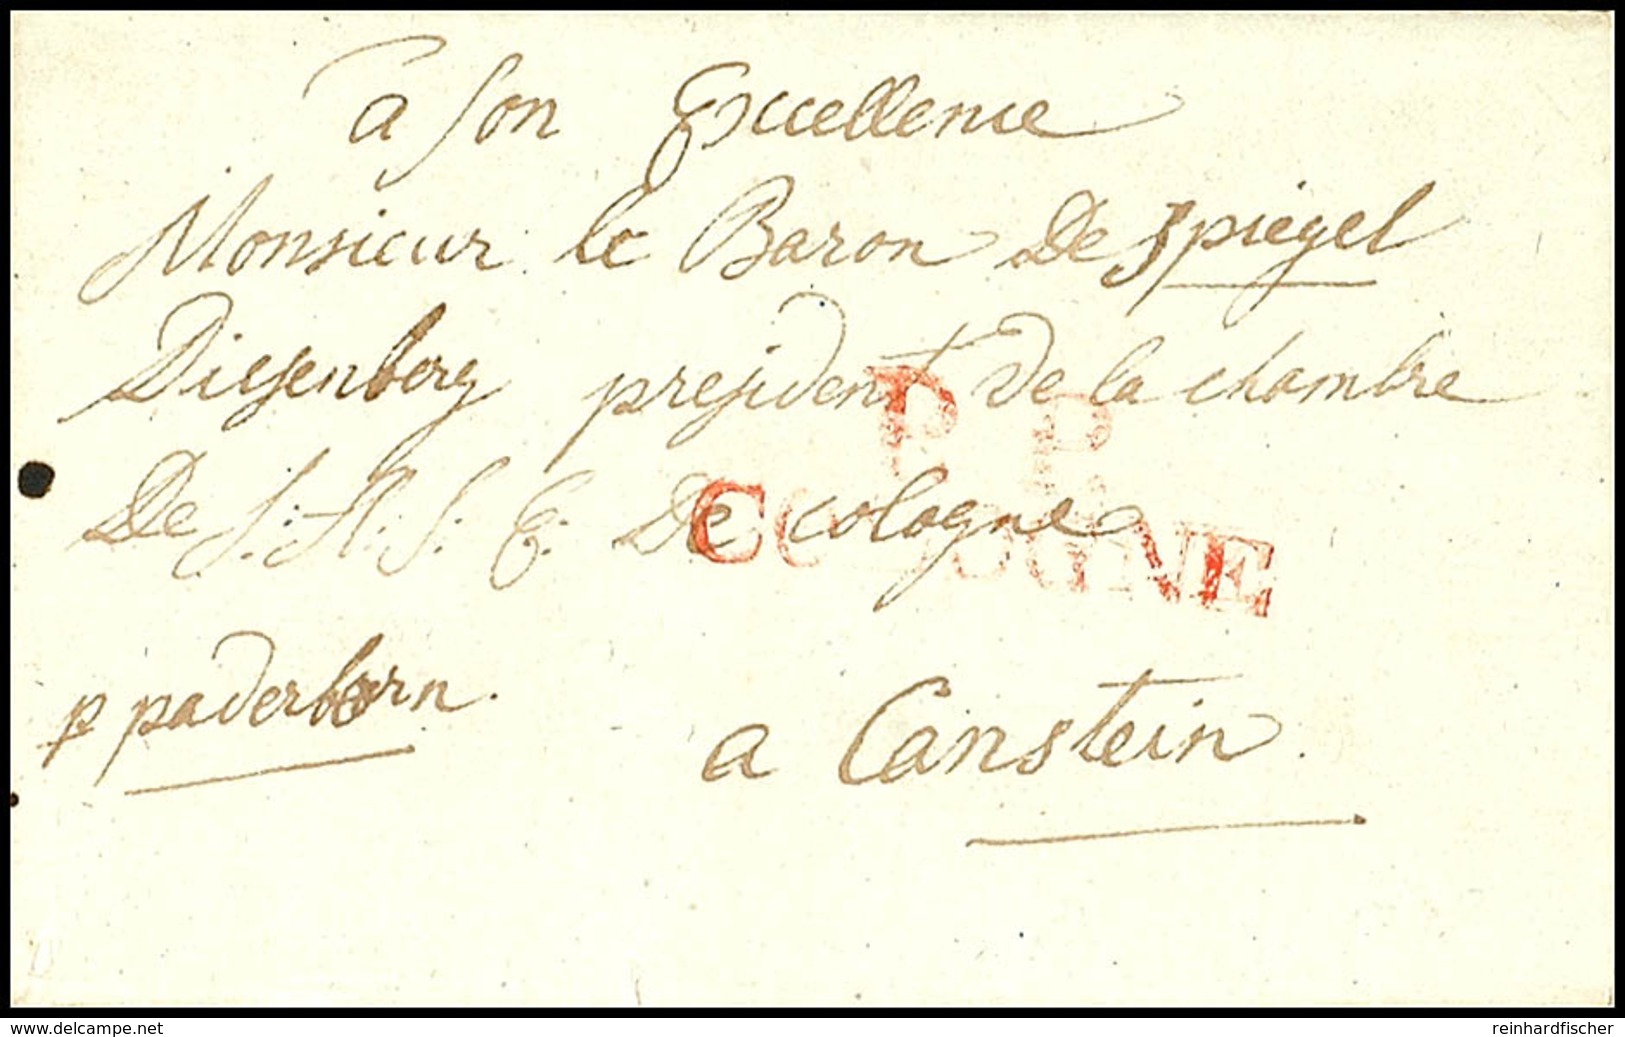 a Son Excellence
Monsieur le Baron De Spiegel
Diesenberg president de la chambre
P. P.
De S: A: S: E: De cologne
COLOGNE
p paderborn.
a Canstein.
www.delcampe.net
reinhardfischer